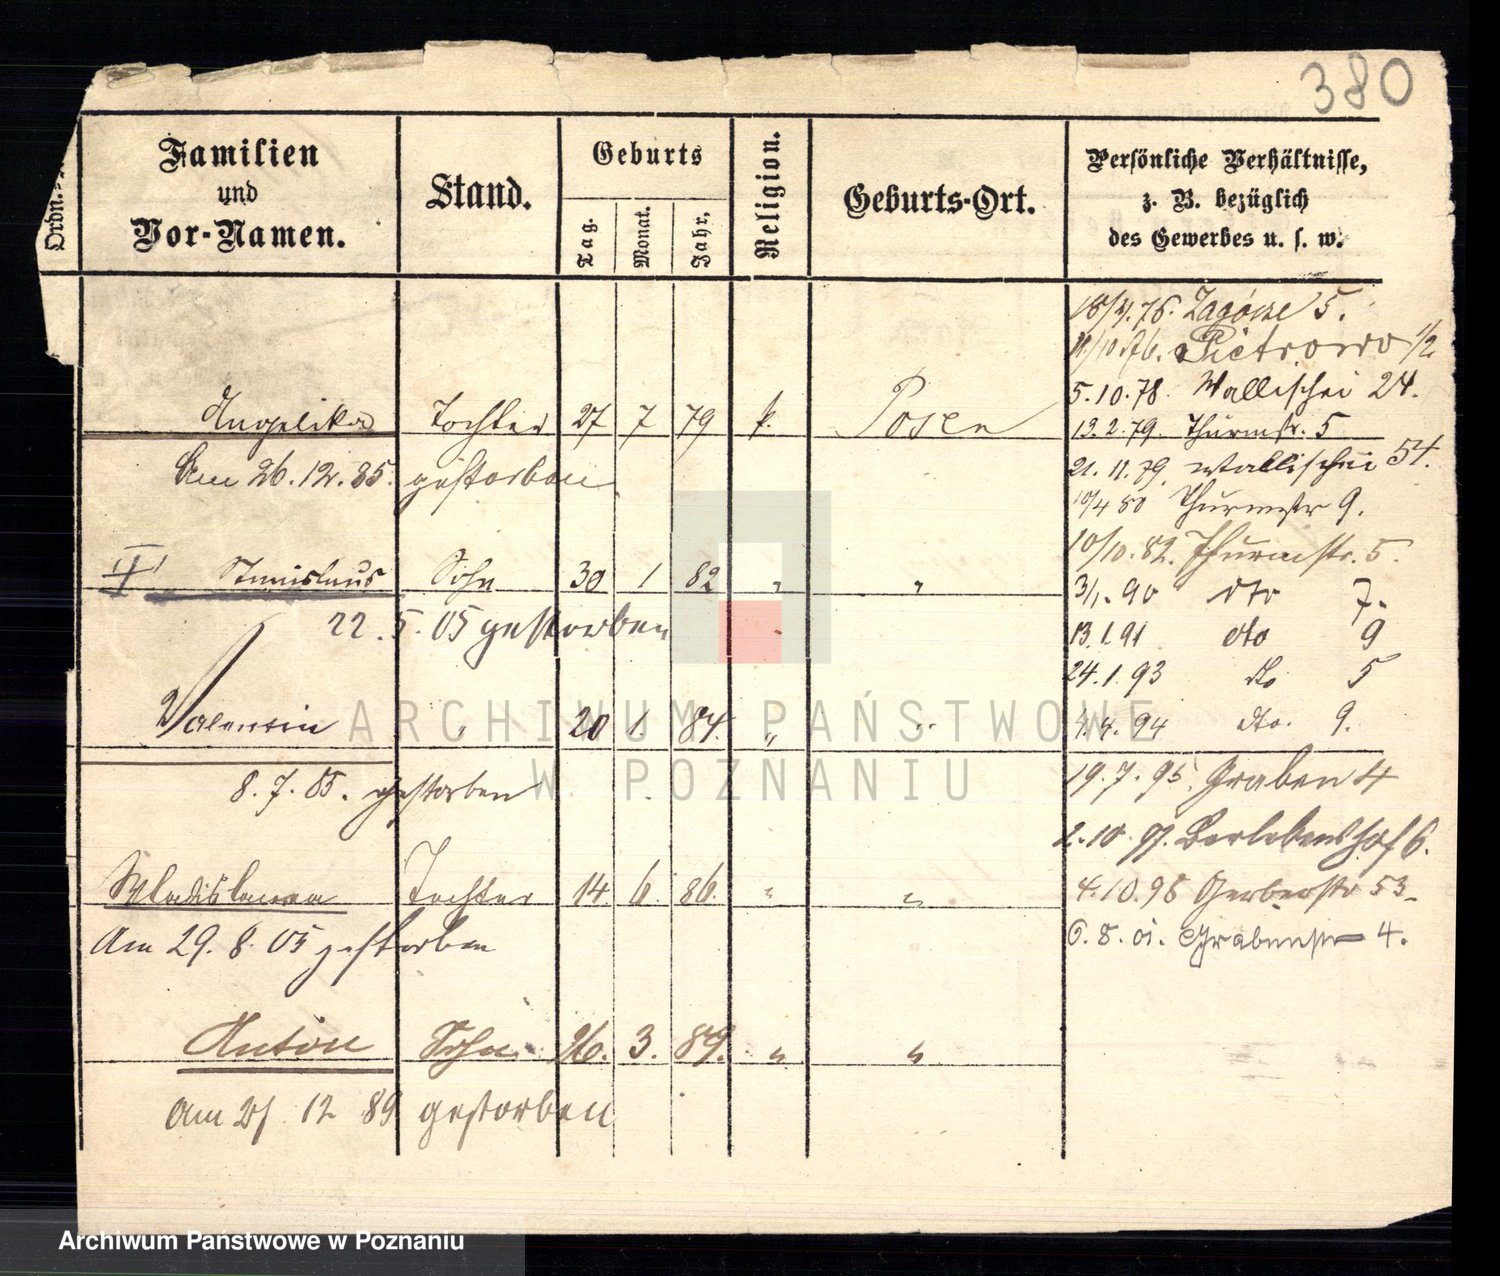 380
Ordn.
Familien
und
Vor-Namen.
Stand.
Geburts
Tag.
Monat.
Jahr.
Religion.
Geburts-Ort.
Persönliche Verhältnisse,
z. B. bezüglich
des Gewerbes u. s. w.
18/4.76. Zagórze 5.
11/10 76. Pietrowo 1/2
5.10.78. Wallischei 24.
Angelika Tochter 27 7 79 k. Posen
13.2.79. Thurmstr. 5
Am 26.12.85. gestorben
21.11.79. Wallischei 54.
10/4 80 Thurmstr 9.
10/10.82. Thurmstr. 5.
II Stanislaus Sohn 30 1 82 " "
3/1.90 dto 7.
22.5.05 gestorben
13.1.91 dto 9
24.1.93 do 5
Valentin " 20 1. 84. " "
4.4.94 dto. 9.
8.7.85. gestorben
19.7.95. Graben 4
2.10.97. Berlebenshof 6.
Wladislawa Tochter 14. 6. 86. " "
4.10.98 Gerberstr 53.
Am 29.8.05 gestorben
6.8.01. Grabenstr 4.
Anton Sohn 26. 3. 89. " "
Am 27.12 89 gestorben
ARCHIWUM PAŃSTWOWE
W POZNANIU
Archiwum Państwowe w Poznaniu